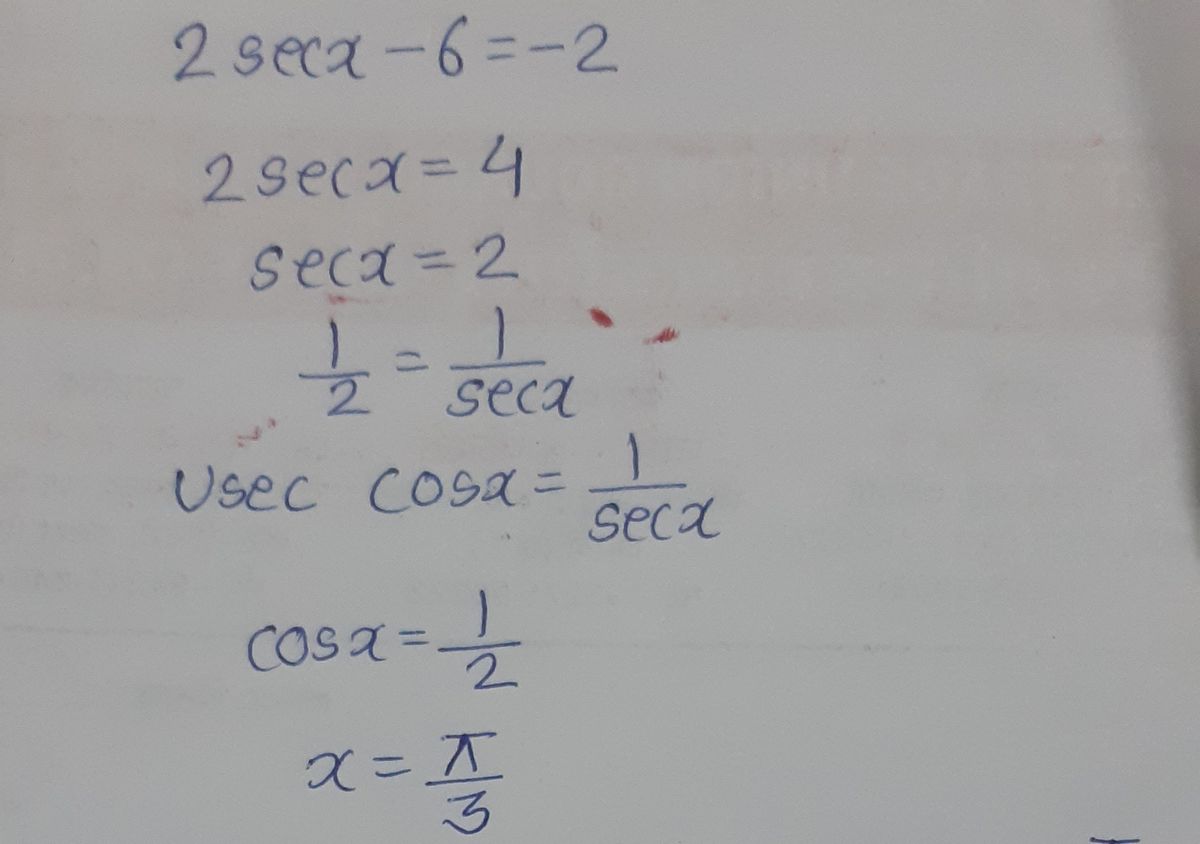 2 sec x - 6 = -2
2 sec x = 4
sec x = 2
1/2 = 1/sec x
Usec cos x = 1/sec x
cos x = 1/2
x = π/3